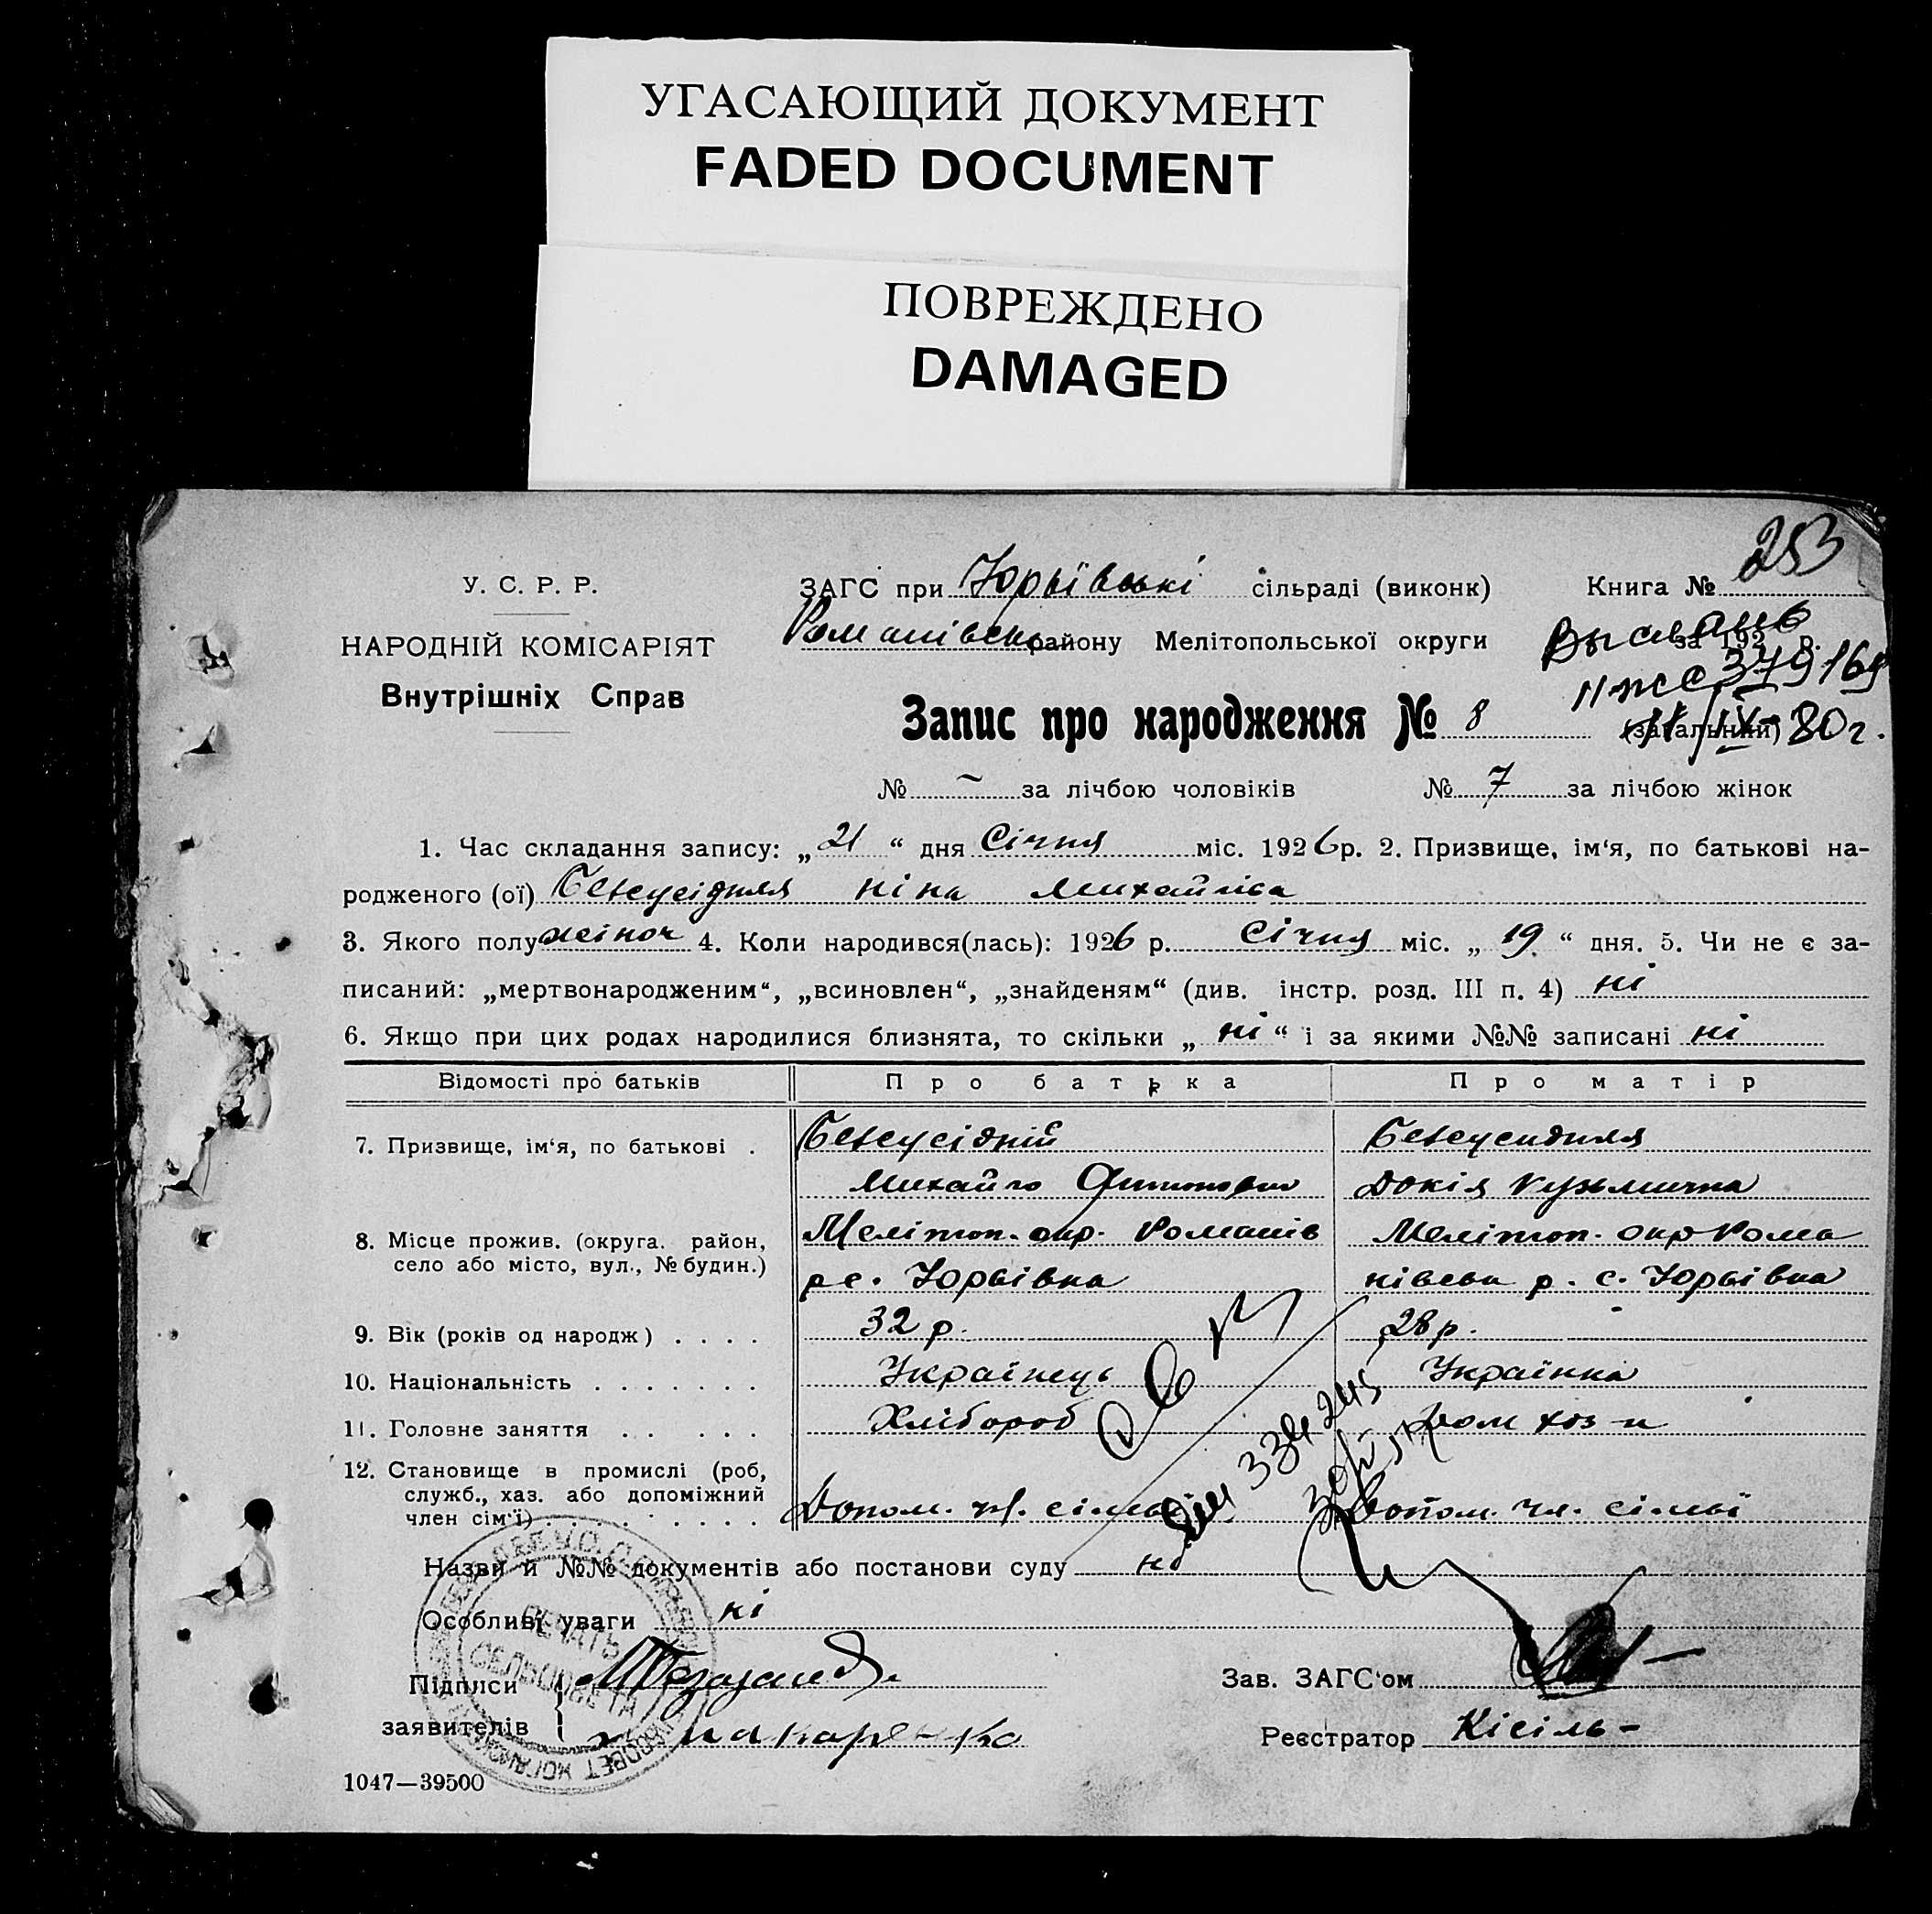 УГАСАЮЩИЙ ДОКУМЕНТ
FADED DOCUMENT
ПОВРЕЖДЕНО
DAMAGED
253
У. С. Р. Р.
ЗАГС при Юрьївські сільраді (виконк)
Книга №
НАРОДНІЙ КОМІСАРІЯТ
Романівськ району Мелітопольської округи
за 192 р.
Внутрішніх Справ
Запис про народження № 8 (загальний) 80 г.
№ – за лічбою чоловіків № 7 за лічбою жінок
1. Час складання запису: „ 21 “ дня Січня міс. 1926 р. 2. Призвище, ім‘я, по батькові на-
родженого (ої) Безусідняя Ніна Михайліва
3. Якого полу жіноч 4. Коли народився(лась): 1926 р. Січня міс. „ 19 “ дня. 5. Чи не є за-
писаний: „мертвонародженим“, „всиновлен“, „знайденям“ (див. інстр. розд. III п. 4) ні
6. Якщо при цих родах народилися близнята, то скільки „ ні “ і за якими №№ записані ні
Відомості про батьків Про батька Про матір
7. Призвище, ім‘я, по батькові . Безусідній Безусидняя
Михайло Докія Кузьмична
8. Місце прожив. (округа. район, Мелітоп. окр. Романів Мелітоп. окр Рома
село або місто, вул., № будин.) р с. Юрьівка нівськ р. с. Юрьівка
9. Вік (років од народж) . . . . 32 р. 28 р.
10. Національність . . . . . . . Українець Українка
11. Головне заняття . . . . . Хлібороб дом хоз-и
12. Становище в промислі (роб,
служб., хаз. або допоміжний
член сім‘ї) . . . . . . . . . Допом. чл. сімьї Допом. чл. сімьї
Назви й №№ документів або постанови суду ні
Особливі уваги ні
ПЕЧАТЬ
СЕЛЬСОВЕТА
Підписи
Зав. ЗАГС‘ом
заявителів Макаренко
Реєстратор Кісіль -
1047—39500